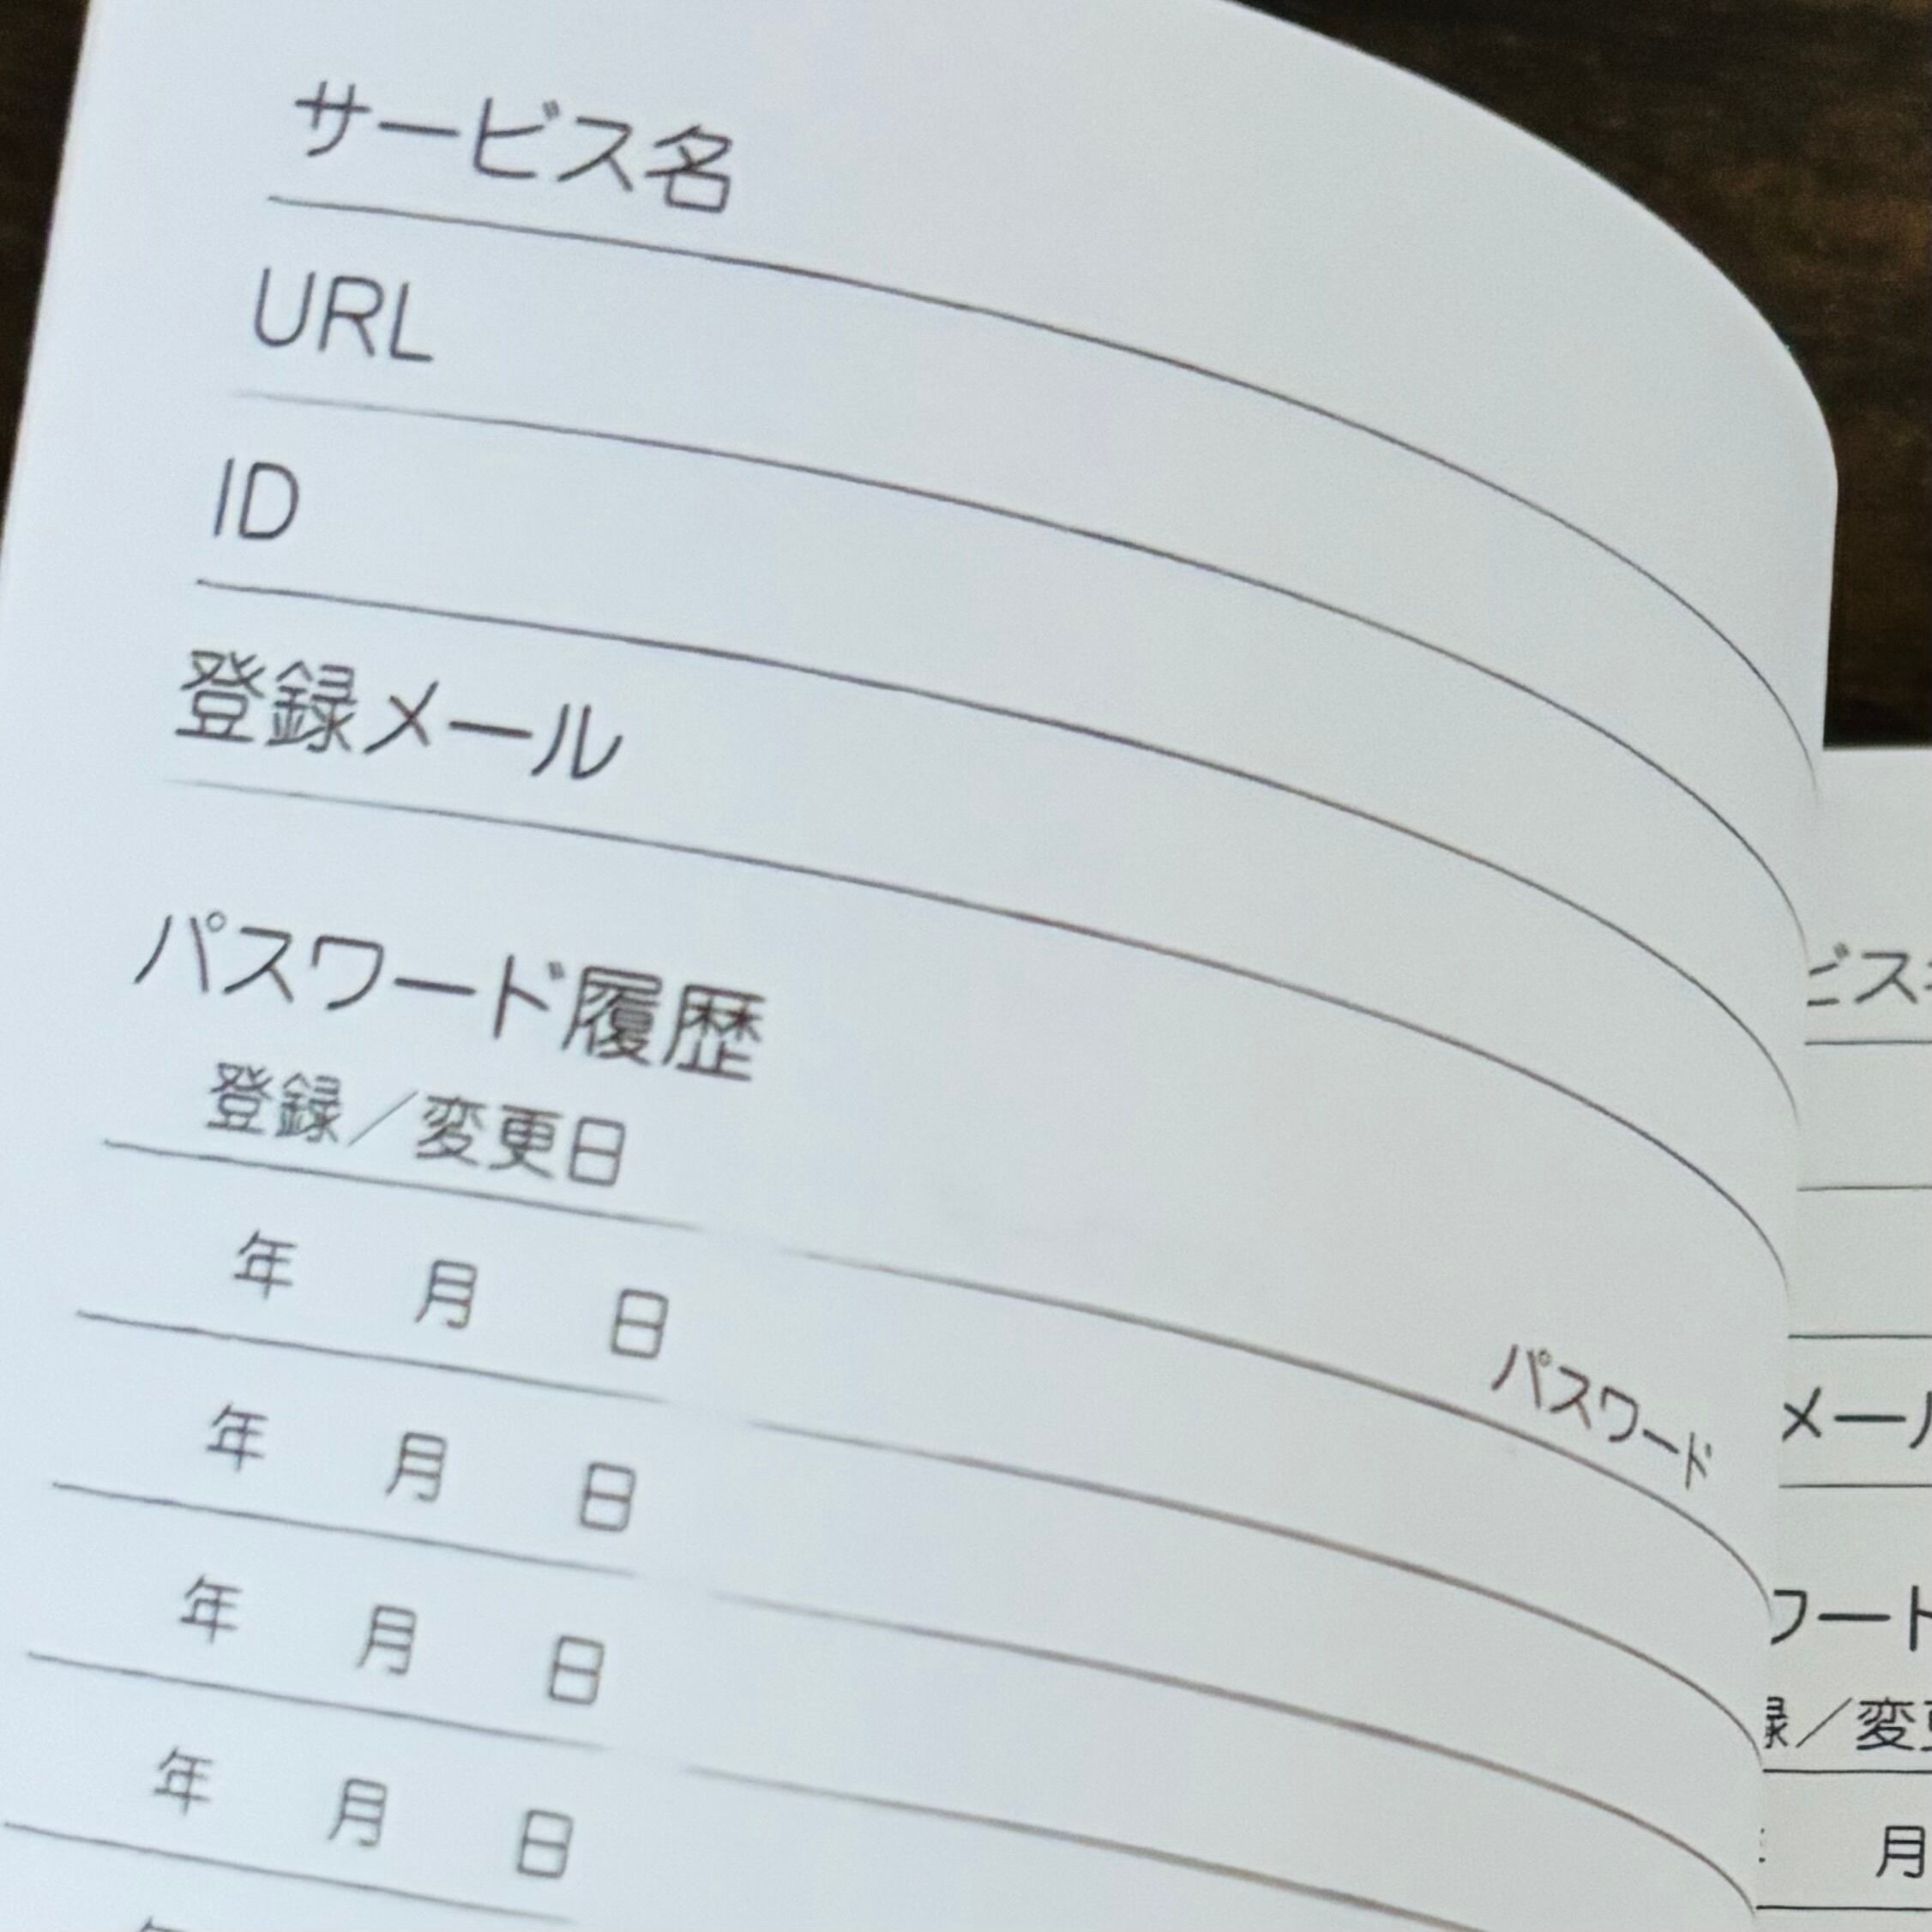 サービス名
URL
ID
登録メール
パスワード履歴
登録／変更日 パスワード
年 月 日
年 月 日
年 月 日
年 月 日
年
ビス
メール
ワード
録／変更
月